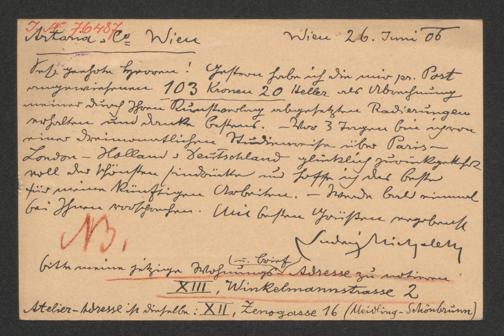 I.N. 76487
Artaria & Co Wien
Wien 26. Juni 06
Sehr geehrte Herren! Gestern habe ich die mir pr. Post
angewiesenen 103 Kronen 20 Heller als Abrechnung
meiner durch Ihren Kunstverlag abgesetzten Radierungen
erhalten und danke bestens. – Vor 3 Tagen bin ich von
einer dreimonatlichen Studienreise über Paris –
London – Holland & Deutschland glücklich zurückgekehrt
voll der schönsten Eindrücke und hoffe ich das Beste
für meine künftigen Arbeiten. – Werde bald einmal
bei Ihnen vorsprechen. Mit besten Grüßen ergebenst
Ludwig Michalek
NB.
(u. Brief)
bitte meine jetzige Wohnungs-Adresse zu notieren
XIII, Winkelmannstrasse 2
Atelier-Adresse ist dieselbe: XII, Zenogasse 16 (Meidling-Schönbrunn)